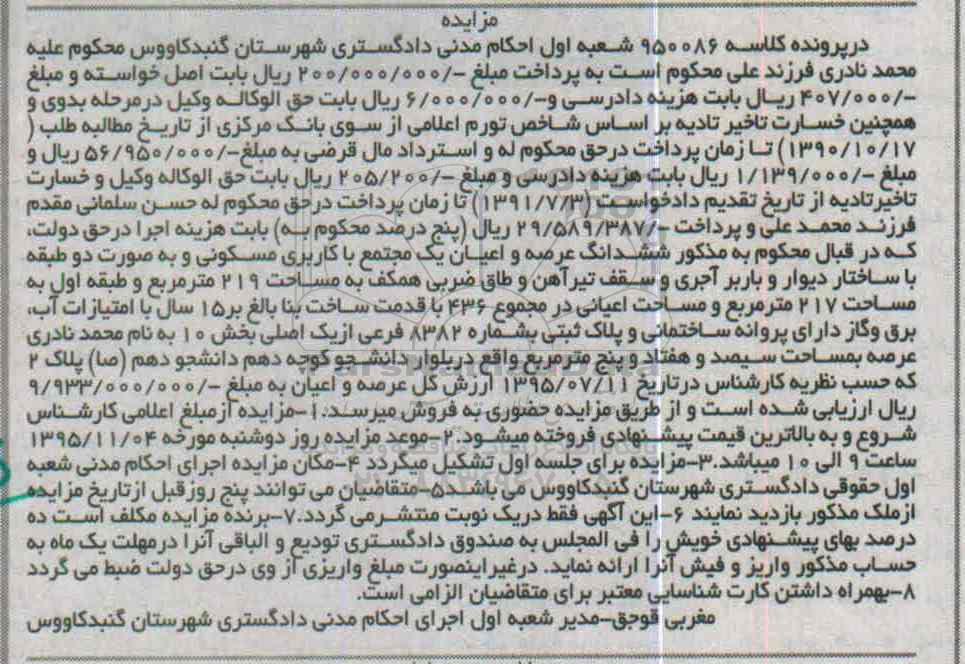 مزایده
درپرونده کلاسه ۹۵۰۰۸۶ شعبه اول احکام مدنی دادگستری شهرستان گنبدکاووس محکوم علیه
محمد نادری فرزند علی محکوم است به پرداخت مبلغ -/۲۰۰/۰۰۰/۰۰۰ ریال بابت اصل خواسته و مبلغ
-/۴۰۷/۰۰۰ ریال بابت هزینه دادرسی و-/۶/۰۰۰/۰۰۰ ریال بابت حق الوکاله وکیل درمرحله بدوی و
همچنین خسارت تاخیر تادیه بر اساس شاخص تورم اعلامی از سوی بانک مرکزی از تاریخ مطالبه طلب (
۱۳۹۰/۱۰/۱۷) تا زمان پرداخت درحق محکوم له و استرداد مال قرضی به مبلغ-/۵۶/۹۵۰/۰۰۰ ریال و
مبلغ -/۱/۱۳۹/۰۰۰ ریال بابت هزینه دادرسی و مبلغ -/۲۰۵/۲۰۰ ریال بابت حق الوکاله وکیل و خسارت
تاخیرتادیه از تاریخ تقدیم دادخواست (۱۳۹۱/۷/۳) تا زمان پرداخت درحق محکوم له حسن سلمانی مقدم
فرزند محمد علی و پرداخت -/۲۹/۵۸۹/۳۸۷ ریال (پنج درصد محکوم به) بابت هزینه اجرا درحق دولت،
که در قبال محکوم به مذکور ششدانگ عرصه و اعیان یک مجتمع با کاربری مسکونی و به صورت دو طبقه
با ساختار دیوار و باربر آجری و سقف تیرآهن و طاق ضربی همکف به مساحت ۲۱۹ مترمربع و طبقه اول به
مساحت ۲۱۷ مترمربع و مساحت اعیانی در مجموع ۴۳۶ با قدمت ساخت بنا بالغ بر۱۵ سال با امتیازات آب،
برق وگاز دارای پروانه ساختمانی و پلاک ثبتی بشماره ۸۳۸۲ فرعی ازیک اصلی بخش ۱۰ به نام محمد نادری
عرصه بمساحت سیصد و هفتاد و پنج مترمربع واقع دربلوار دانشجو کوچه دهم دانشجو دهم (صا) پلاک ۲
که حسب نظریه کارشناس درتاریخ ۱۳۹۵/۰۷/۱۱ ارزش کل عرصه و اعیان به مبلغ -/۹/۹۳۳/۰۰۰/۰۰۰
ریال ارزیابی شده است و از طریق مزایده حضوری به فروش میرسد.۱-مزایده ازمبلغ اعلامی کارشناس
شروع و به بالاترین قیمت پیشنهادی فروخته میشود.۲-موعد مزایده روز دوشنبه مورخه ۱۳۹۵/۱۱/۰۴
ساعت ۹ الی ۱۰ میباشد.۳-مزایده برای جلسه اول تشکیل میگردد ۴-مکان مزایده اجرای احکام مدنی شعبه
اول حقوقی دادگستری شهرستان گنبدکاووس می باشد۵-متقاضیان می توانند پنج روزقبل ازتاریخ مزایده
ازملک مذکور بازدید نمایند ۶-این آگهی فقط دریک نوبت منتشرمی گردد.۷-برنده مزایده مکلف است ده
درصد بهای پیشنهادی خویش را فی المجلس به صندوق دادگستری تودیع و الباقی آنرا درمهلت یک ماه به
حساب مذکور واریز و فیش آنرا ارائه نماید. درغیراینصورت مبلغ واریزی از وی درحق دولت ضبط می گردد
۸-بهمراه داشتن کارت شناسایی معتبر برای متقاضیان الزامی است.
مغربی قوجق-مدیر شعبه اول اجرای احکام مدنی دادگستری شهرستان گنبدکاووس